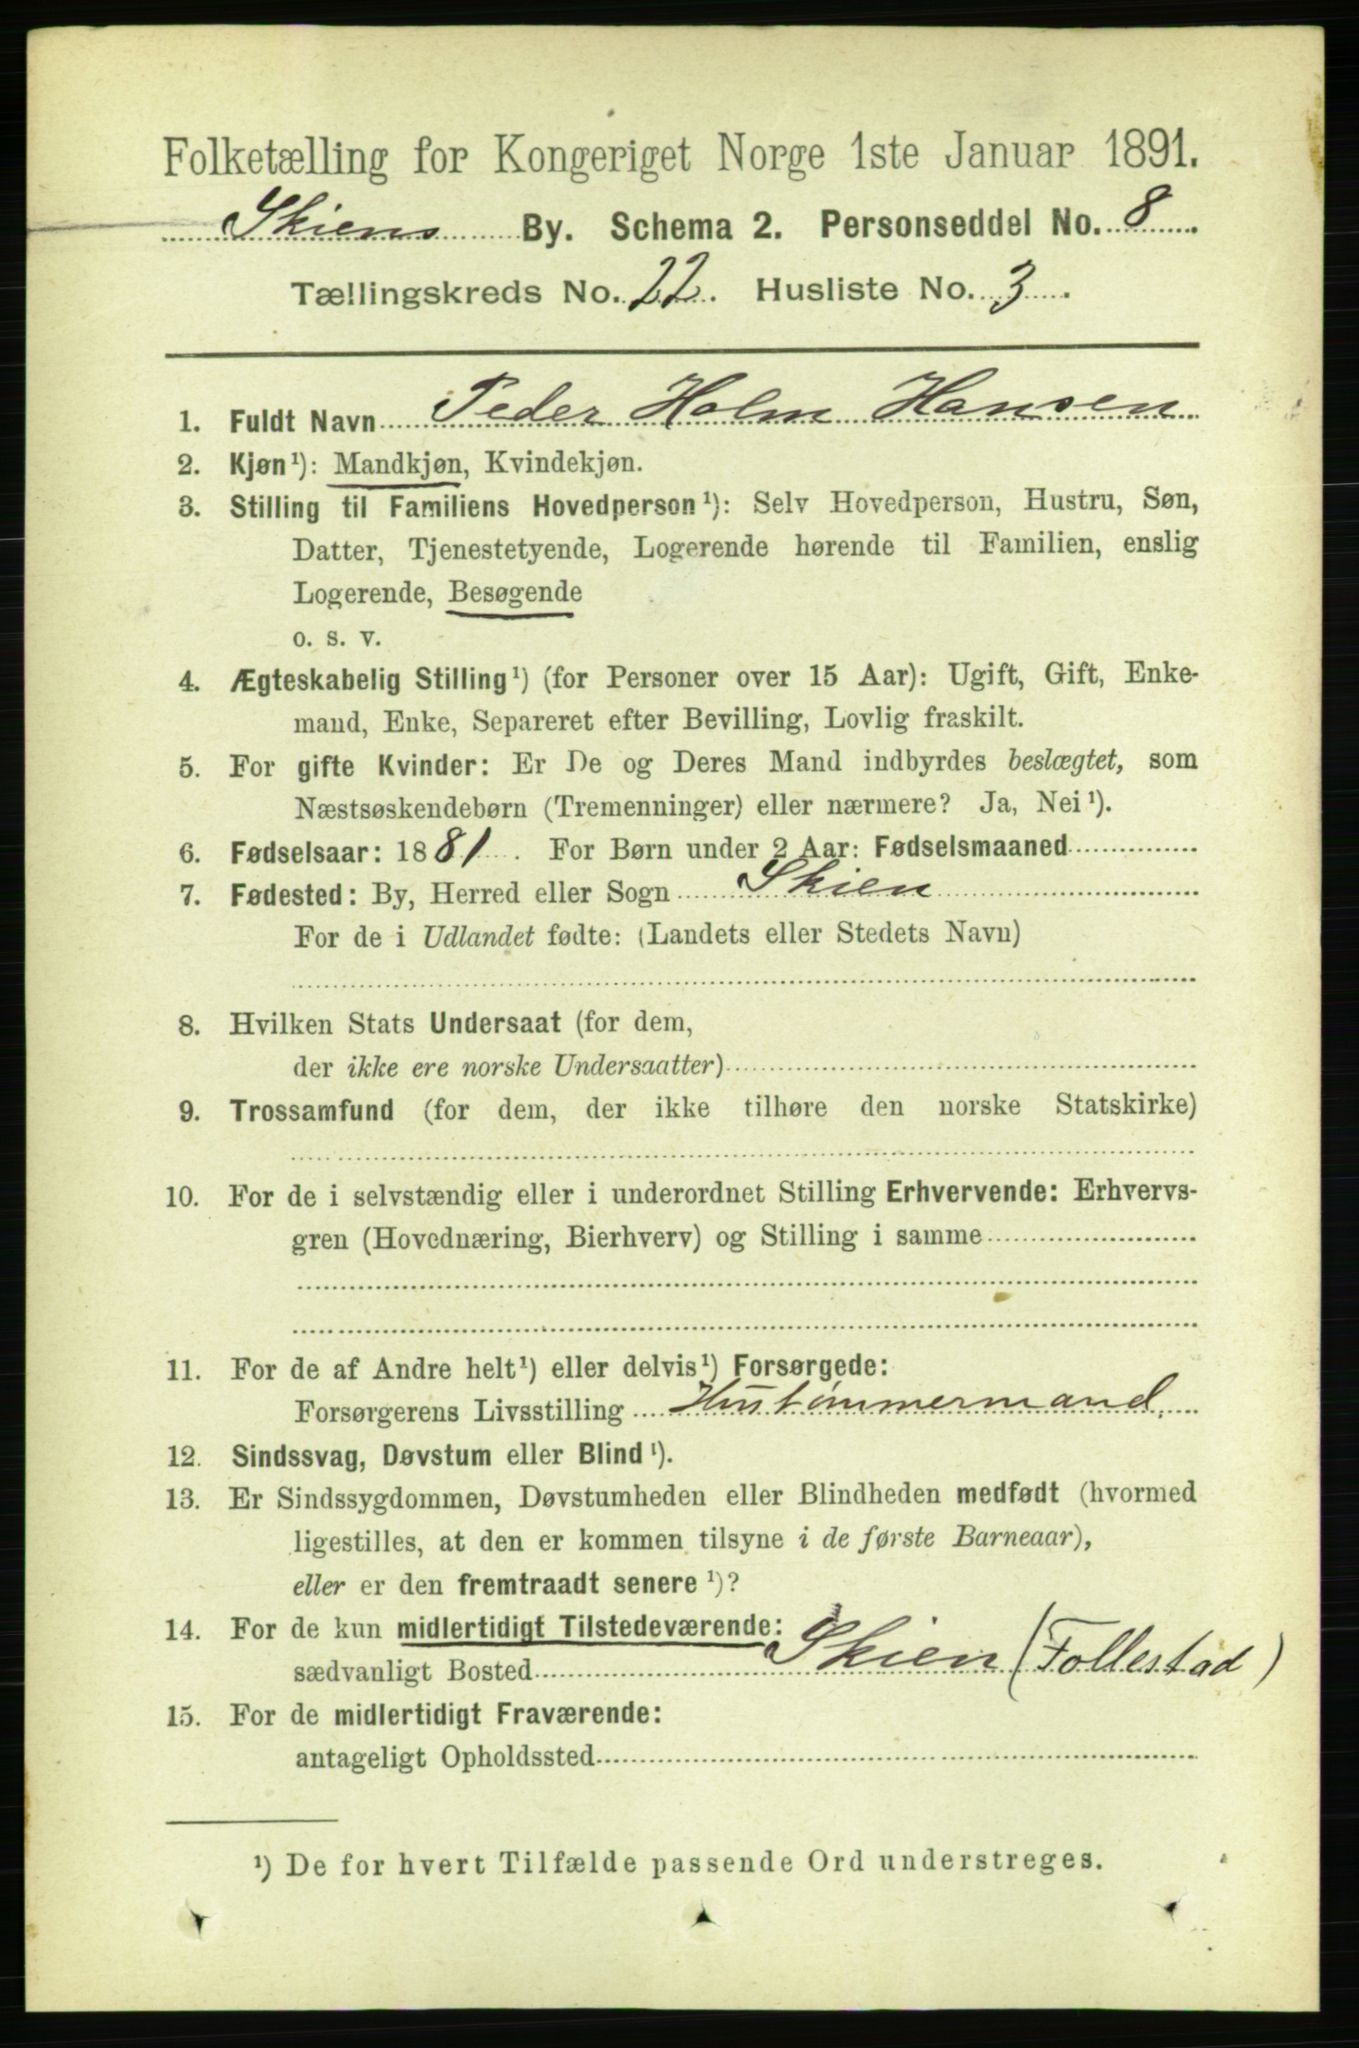 Folketælling for Kongeriget Norge 1ste Januar 1891.
Skiens By. Schema 2. Personseddel No. 8
Tællingskreds No. 22. Husliste No. 3.
1. Fuldt Navn Peder Holm Hansen
2. Kjøn¹): Mandkjøn, Kvindekjøn.
3. Stilling til Familiens Hovedperson¹): Selv Hovedperson, Hustru, Søn,
Datter, Tjenestetyende, Logerende hørende til Familien, enslig
Logerende, Besøgende
o. s. v.
4. Ægteskabelig Stilling¹) (for Personer over 15 Aar): Ugift, Gift, Enke-
mand, Enke, Separeret efter Bevilling, Lovlig fraskilt.
5. For gifte Kvinder: Er De og Deres Mand indbyrdes beslægtet, som
Næstsøskendebørn (Tremenninger) eller nærmere? Ja, Nei¹).
6. Fødselsaar: 1881. For Børn under 2 Aar: Fødselsmaaned
7. Fødested: By, Herred eller Sogn Skien
For de i Udlandet fødte: (Landets eller Stedets Navn)
8. Hvilken Stats Undersaat (for dem,
der ikke ere norske Undersaatter)
9. Trossamfund (for dem, der ikke tilhøre den norske Statskirke)
10. For de i selvstændig eller i underordnet Stilling Erhvervende: Erhvervs-
gren (Hovednæring, Bierhverv) og Stilling i samme
11. For de af Andre helt¹) eller delvis¹) Forsørgede:
Forsørgerens Livsstilling Hustømmermand.
12. Sindssvag, Døvstum eller Blind¹).
13. Er Sindssygdommen, Døvstumheden eller Blindheden medfødt (hvormed
ligestilles, at den er kommen tilsyne i de første Barneaar),
eller er den fremtraadt senere¹)?
14. For de kun midlertidigt Tilstedeværende:
sædvanligt Bosted Skien (Follestad)
15. For de midlertidigt Fraværende:
antageligt Opholdssted
¹) De for hvert Tilfælde passende Ord understreges.